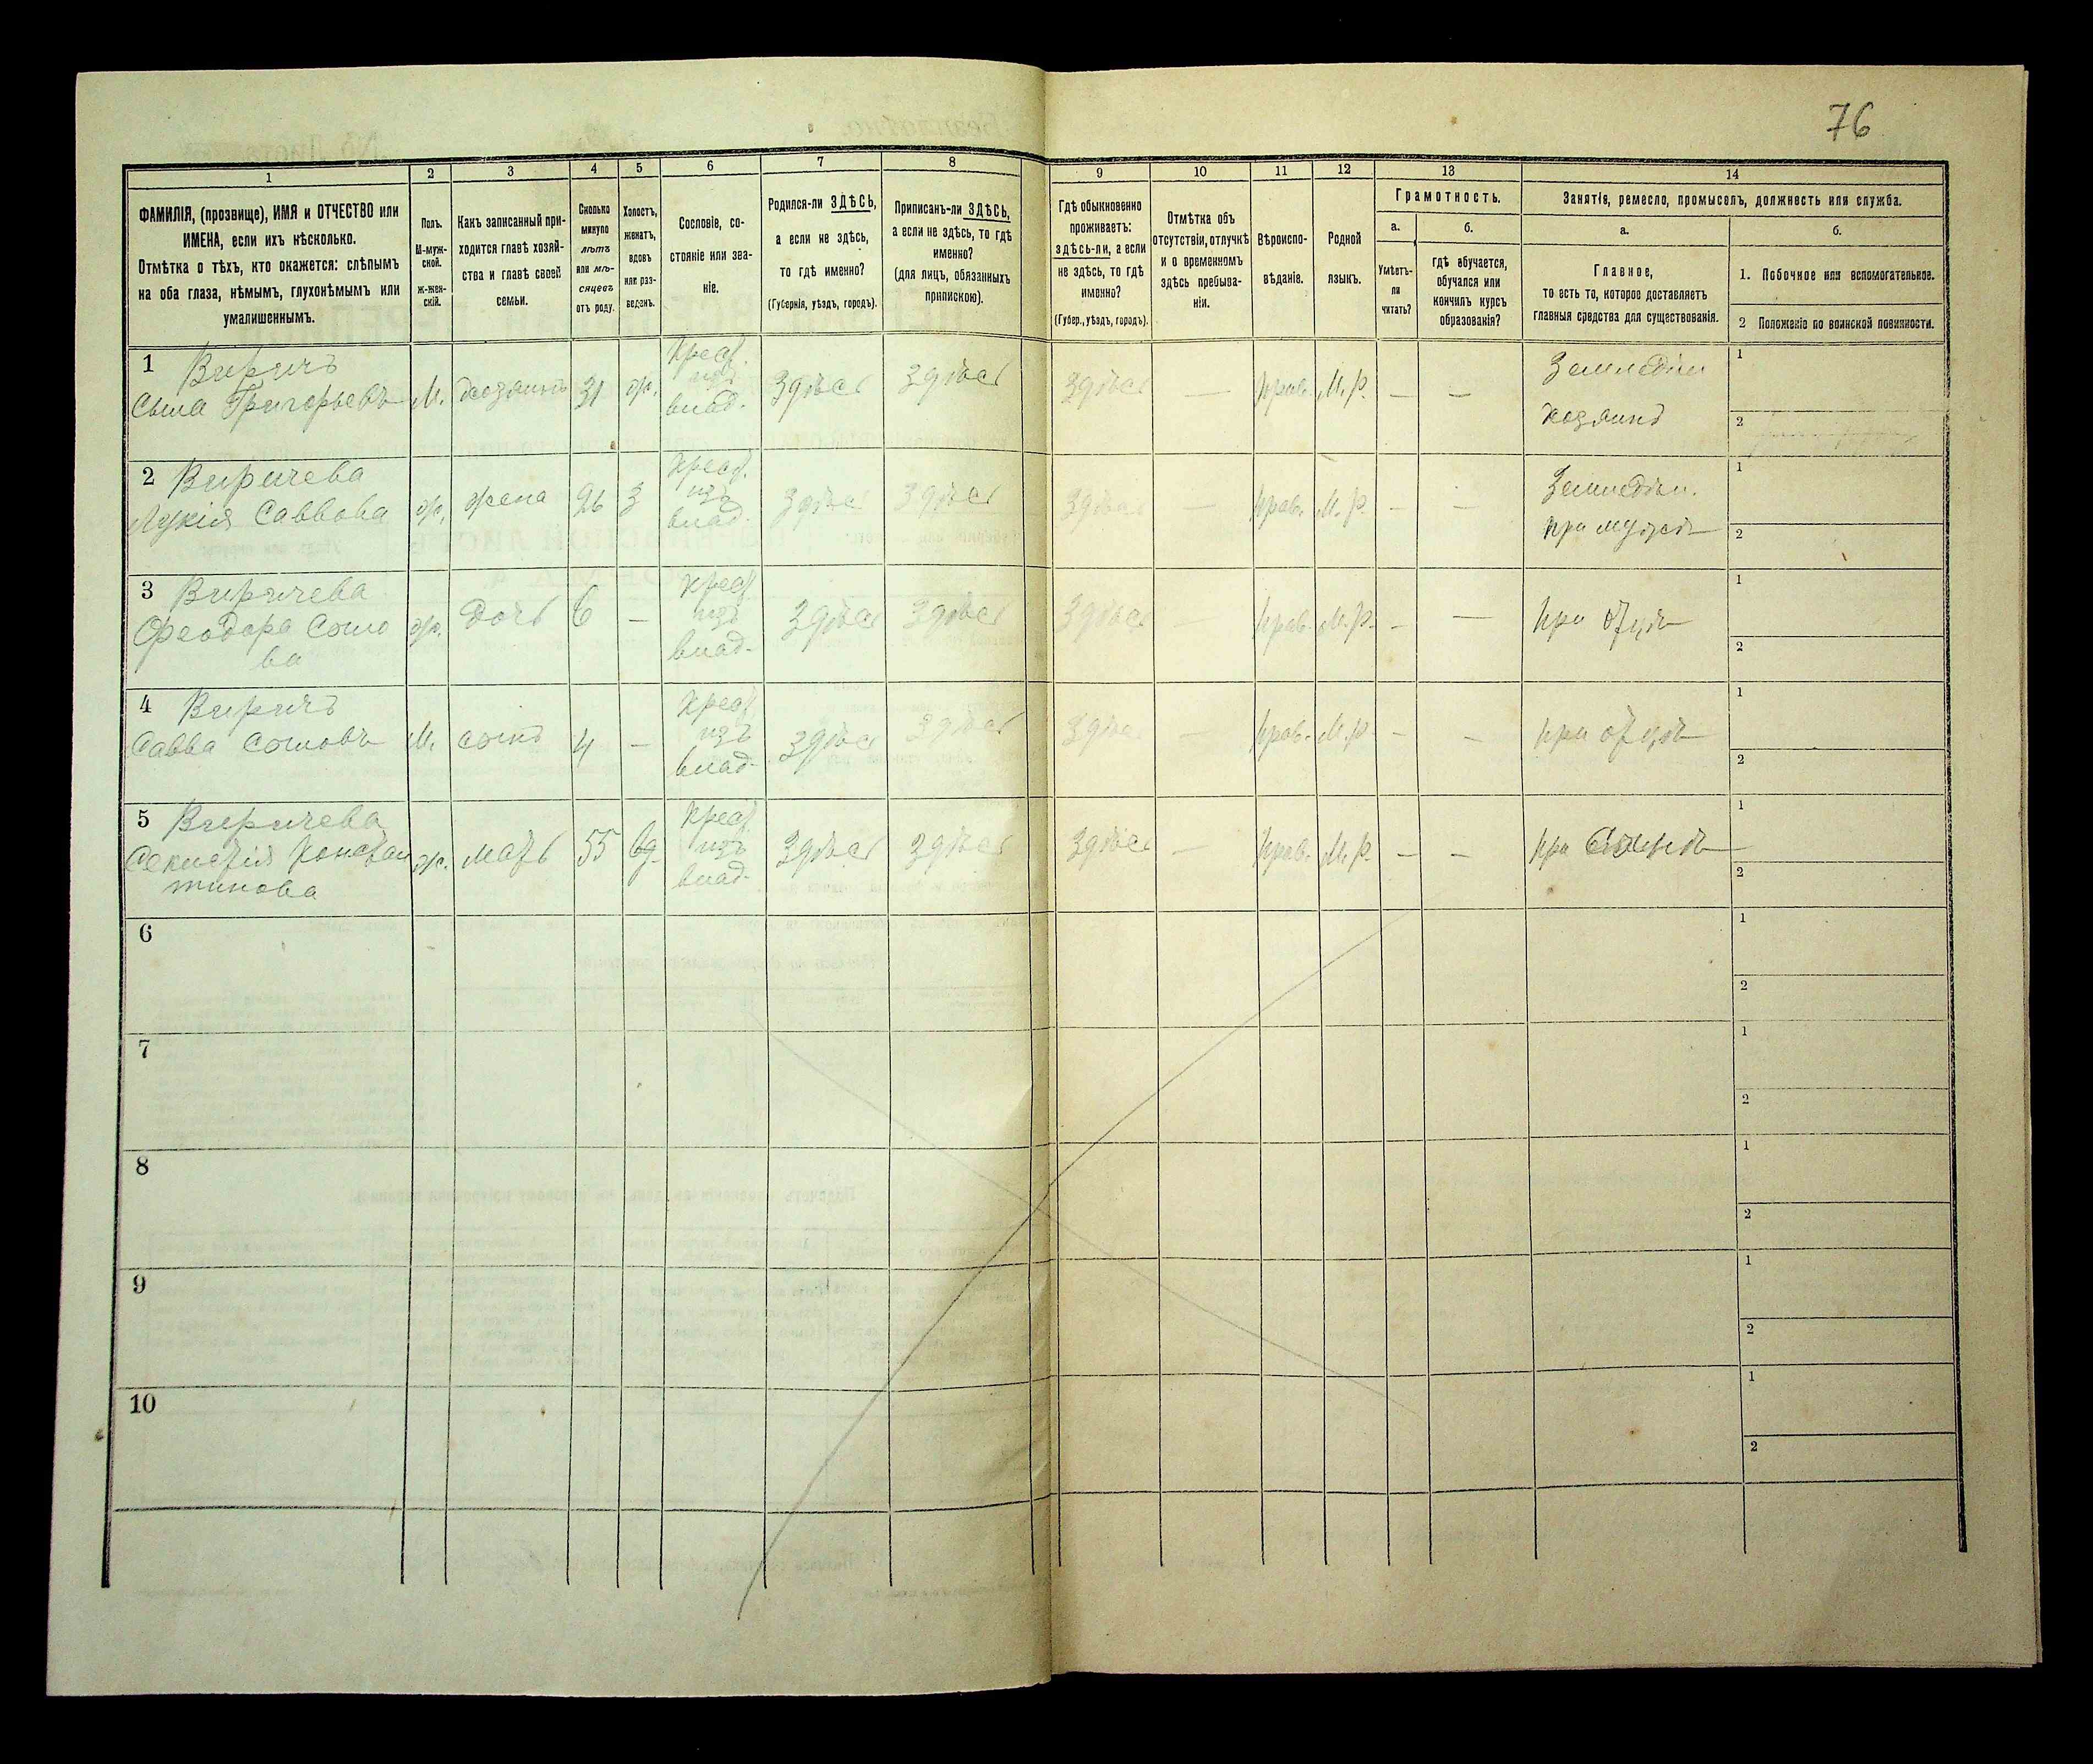 76
1
2
3
4
5
6
7
8
9
10
11
12
13
14
ФАМИЛІЯ, (прозвище), ИМЯ и ОТЧЕСТВО или
ИМЕНА, если ихъ нѣсколько.
Отмѣтка о тѣхъ, кто окажется: слѣпымъ
на оба глаза, нѣмымъ, глухонѣмымъ или
умалишеннымъ.
Полъ.
М-муж-
ской.
ж-жен-
скій.
Какъ записанный при-
ходится главѣ хозяй-
ства и главѣ своей
семьи.
Сколько
минуло
лѣтъ
или мѣ-
сяцевъ
отъ роду.
Холостъ,
женатъ,
вдовъ
или раз-
веденъ.
Сословіе, со-
стояніе или зва-
ніе.
Родился-ли ЗДѢСЬ,
а если не здѣсь,
то гдѣ именно?
(Губернія, уѣздъ, городъ).
Приписанъ-ли ЗДѢСЬ,
а если не здѣсь, то гдѣ
именно?
(для лицъ, обязанныхъ
припискою).
Гдѣ обыкновенно
проживаетъ:
здѣсь-ли, а если
не здѣсь, то гдѣ
именно?
(Губер., уѣздъ, городъ).
Отмѣтка объ
отсутствіи, отлучкѣ
и о временномъ
здѣсь пребыва-
ніи.
Вѣроиспо-
вѣданіе.
Родной
языкъ.
Грамотность.
а.
Умѣетъ-
ли
читать?
б.
гдѣ обучается,
обучался или
кончилъ курсъ
образованія?
Занятіе, ремесло, промыселъ, должность или служба.
а.
Главное,
то есть то, которое доставляетъ
главныя средства для существованія.
б.
1. Побочное или вспомогательное.
2 Положеніе по воинской повинности.
1 Виричъ
Григорьевъ М. хозяинъ 31 ж. Крест. изъ влад. Здѣсь Здѣсь Здѣсь — Прав. М. р. — —
хозяинъ
1
2
2 Виричева
Лукія Саввова ж. жена 26 З Крест. изъ влад. Здѣсь Здѣсь Здѣсь — Прав. М. р. — —
при мужѣ
1
2
3 Виричева
Феодора ж. дочь 6 — Крест. изъ влад. Здѣсь Здѣсь Здѣсь Прав. М. р. — — при отцѣ
1
2
4 Виричъ
Савва М. сынъ 4 — Крест. изъ влад. Здѣсь Здѣсь Здѣсь Прав. М. р. — — при отцѣ
1
2
5 Виричева
Констан
тинова ж. мать 55 вд. Крест. изъ влад. Здѣсь Здѣсь Здѣсь — Прав. М. р. — — при
1
2
6
1
2
7
1
2
8
1
2
9
1
2
10
1
2